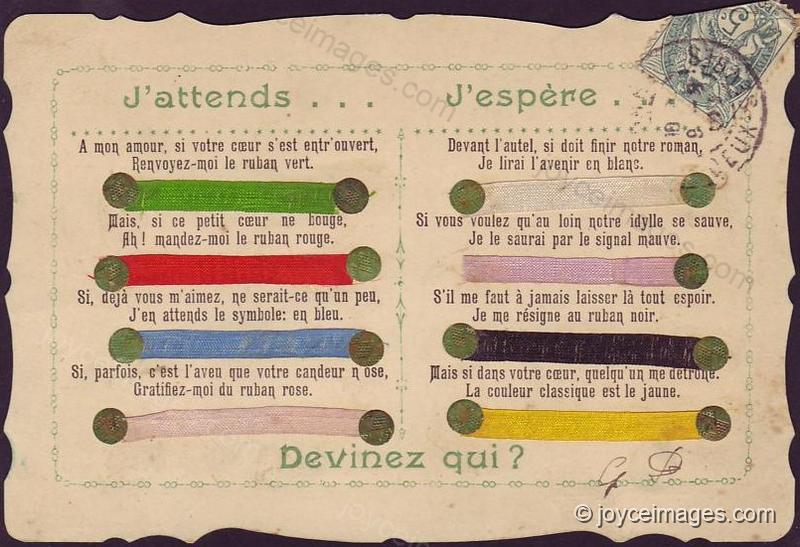 J'attends . . .
A mon amour, si votre cœur s'est entr'ouvert,
Renvoyez-moi le ruban vert.
Mais, si ce petit cœur ne bouge,
Ah! mandez-moi le ruban rouge.
Si, déjà vous m'aimez, ne serait-ce qu'un peu,
J'en attends le symbole: en bleu.
Si, parfois, c'est l'aveu que votre candeur n'ose,
Gratifiez-moi du ruban rose.
J'espère . .
Devant l'autel, si doit finir notre roman,
Je lirai l'avenir en blanc.
Si vous voulez qu'au loin notre idylle se sauve,
Je le saurai par le signal mauve.
S'il me faut à jamais laisser là tout espoir.
Je me résigne au ruban noir.
Mais si dans votre cœur, quelqu'un me détrône.
La couleur classique est le jaune.
Devinez qui?
© joyceimages.com